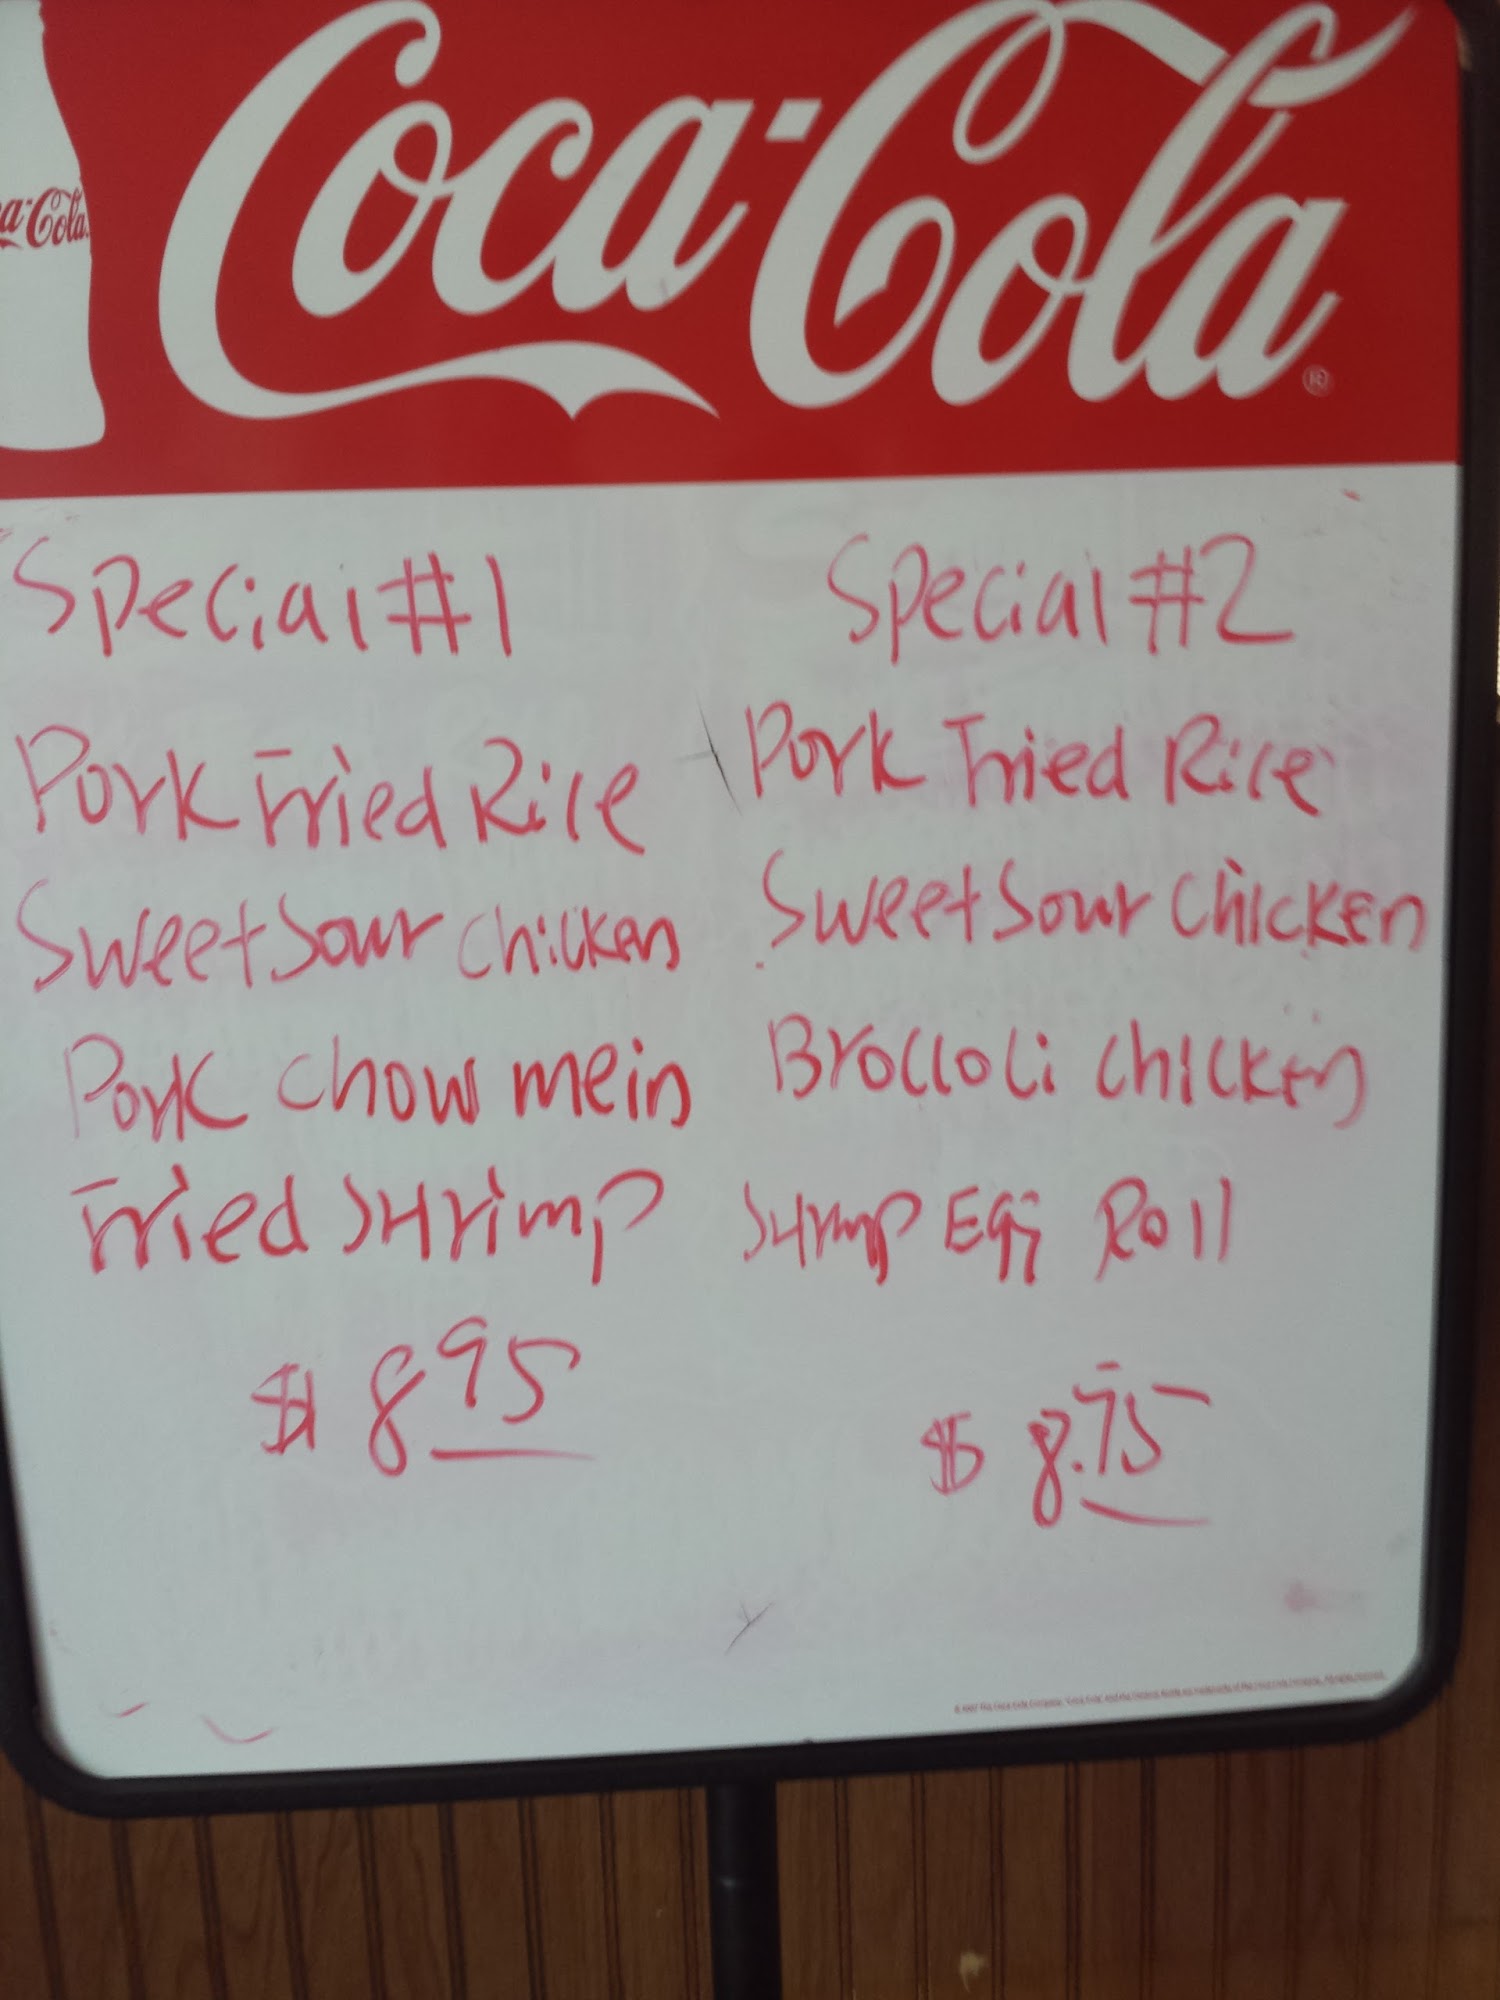 Coca-Cola
®
a-Cola
Special #1
Pork Fried Rice
Sweet Sour Chicken
Pork Chow mein
Fried SHrimp
$ 8 95
Special #2
Pork Fried Rice
Sweet Sour Chicken
Broccoli Chicken
SHrmp Egg Roll
$ 8.75